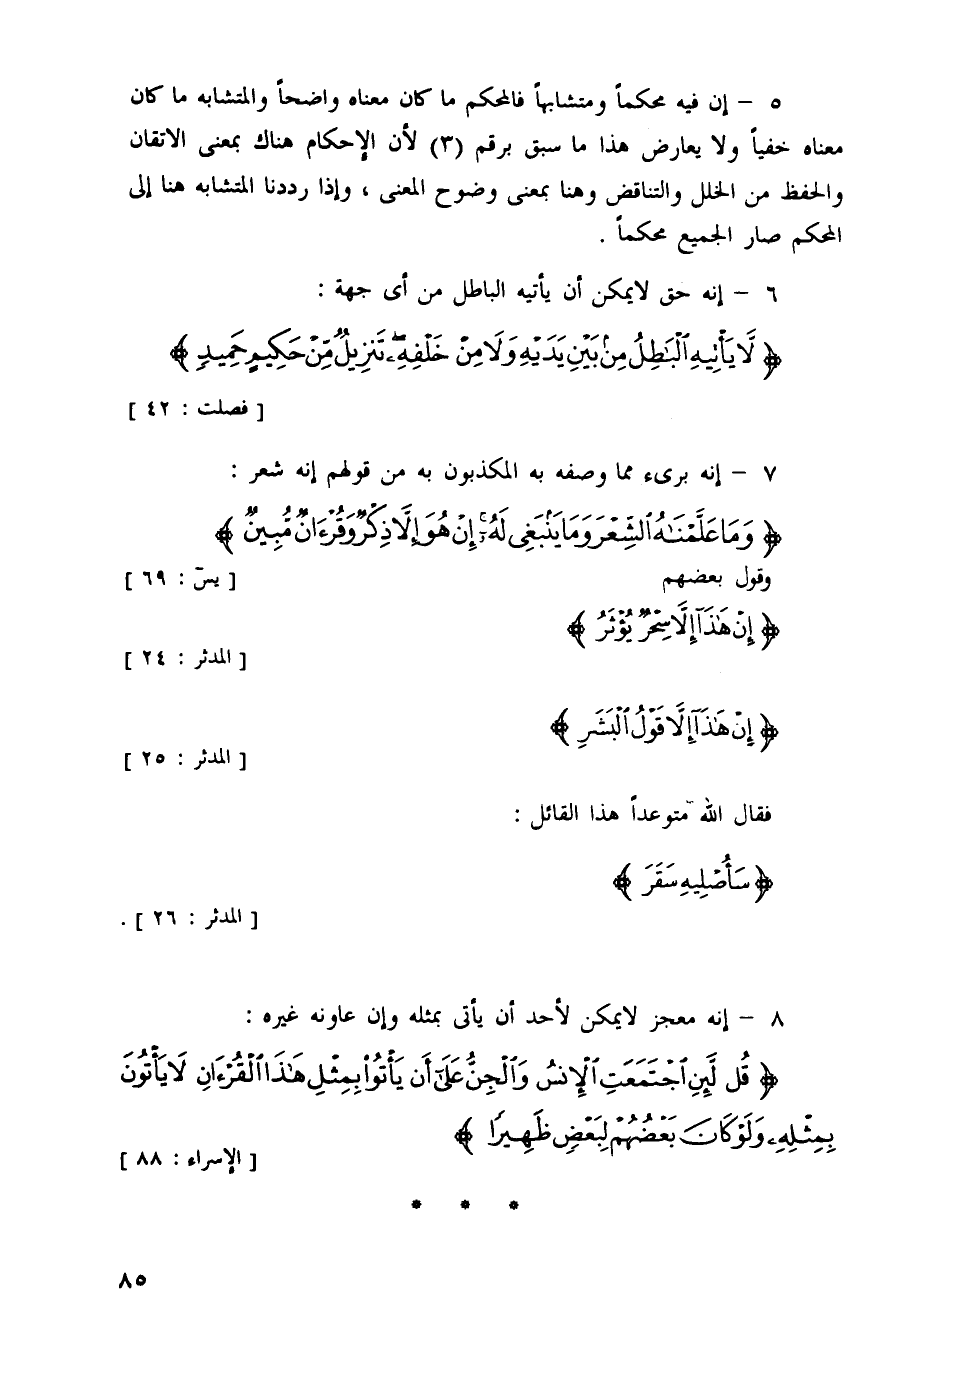 ٥ – إن فيه محكماً ومتشابهاً فالمحكم ما كان معناه واضحاً والمتشابه ما كان
معناه خفياً ولا يعارض هذا ما سبق برقم (٣) لأن الإحكام هناك بمعنى الاتقان
والحفظ من الخلل والتناقض وهنا بمعنى وضوح المعنى ، وإذا رددنا المتشابه هنا إلى
المحكم صار الجميع محكماً .
٦ – إنه حق لايمكن أن يأتيه الباطل من أى جهة :
﴿ لَّا يَأْتِيهِ ٱلْبَٰطِلُ مِنۢ بَيْنِ يَدَيْهِ وَلَا مِنْ خَلْفِهِۦۖ تَنزِيلٌ مِّنْ حَكِيمٍ حَمِيدٍ ﴾
[ فصلت : ٤٢ ]
٧ – إنه برىء مما وصفه به المكذبون به من قولهم إنه شعر :
﴿ وَمَا عَلَّمْنَٰهُ ٱلشِّعْرَ وَمَا يَنۢبَغِى لَهُۥٓۚ إِنْ هُوَ إِلَّا ذِكْرٌ وَقُرْءَانٌ مُّبِينٌ ﴾
[ يسٓ : ٦٩ ]
وقول بعضهم
﴿ إِنْ هَٰذَآ إِلَّا سِحْرٌ يُؤْثَرُ ﴾
[ المدثر : ٢٤ ]
﴿ إِنْ هَٰذَآ إِلَّا قَوْلُ ٱلْبَشَرِ ﴾
[ المدثر : ٢٥ ]
فقال الله متوعداً هذا القائل :
﴿ سَأُصْلِيهِ سَقَرَ ﴾
[ المدثر : ٢٦ ] .
٨ – إنه معجز لايمكن لأحد أن يأتى بمثله وإن عاونه غيره :
﴿ قُل لَّئِنِ ٱجْتَمَعَتِ ٱلْإِنسُ وَٱلْجِنُّ عَلَىٰٓ أَن يَأْتُوا۟ بِمِثْلِ هَٰذَا ٱلْقُرْءَانِ لَا يَأْتُونَ
بِمِثْلِهِۦ وَلَوْ كَانَ بَعْضُهُمْ لِبَعْضٍ ظَهِيرًا ﴾
[ الإسراء : ٨٨ ]
* * *
٨٥